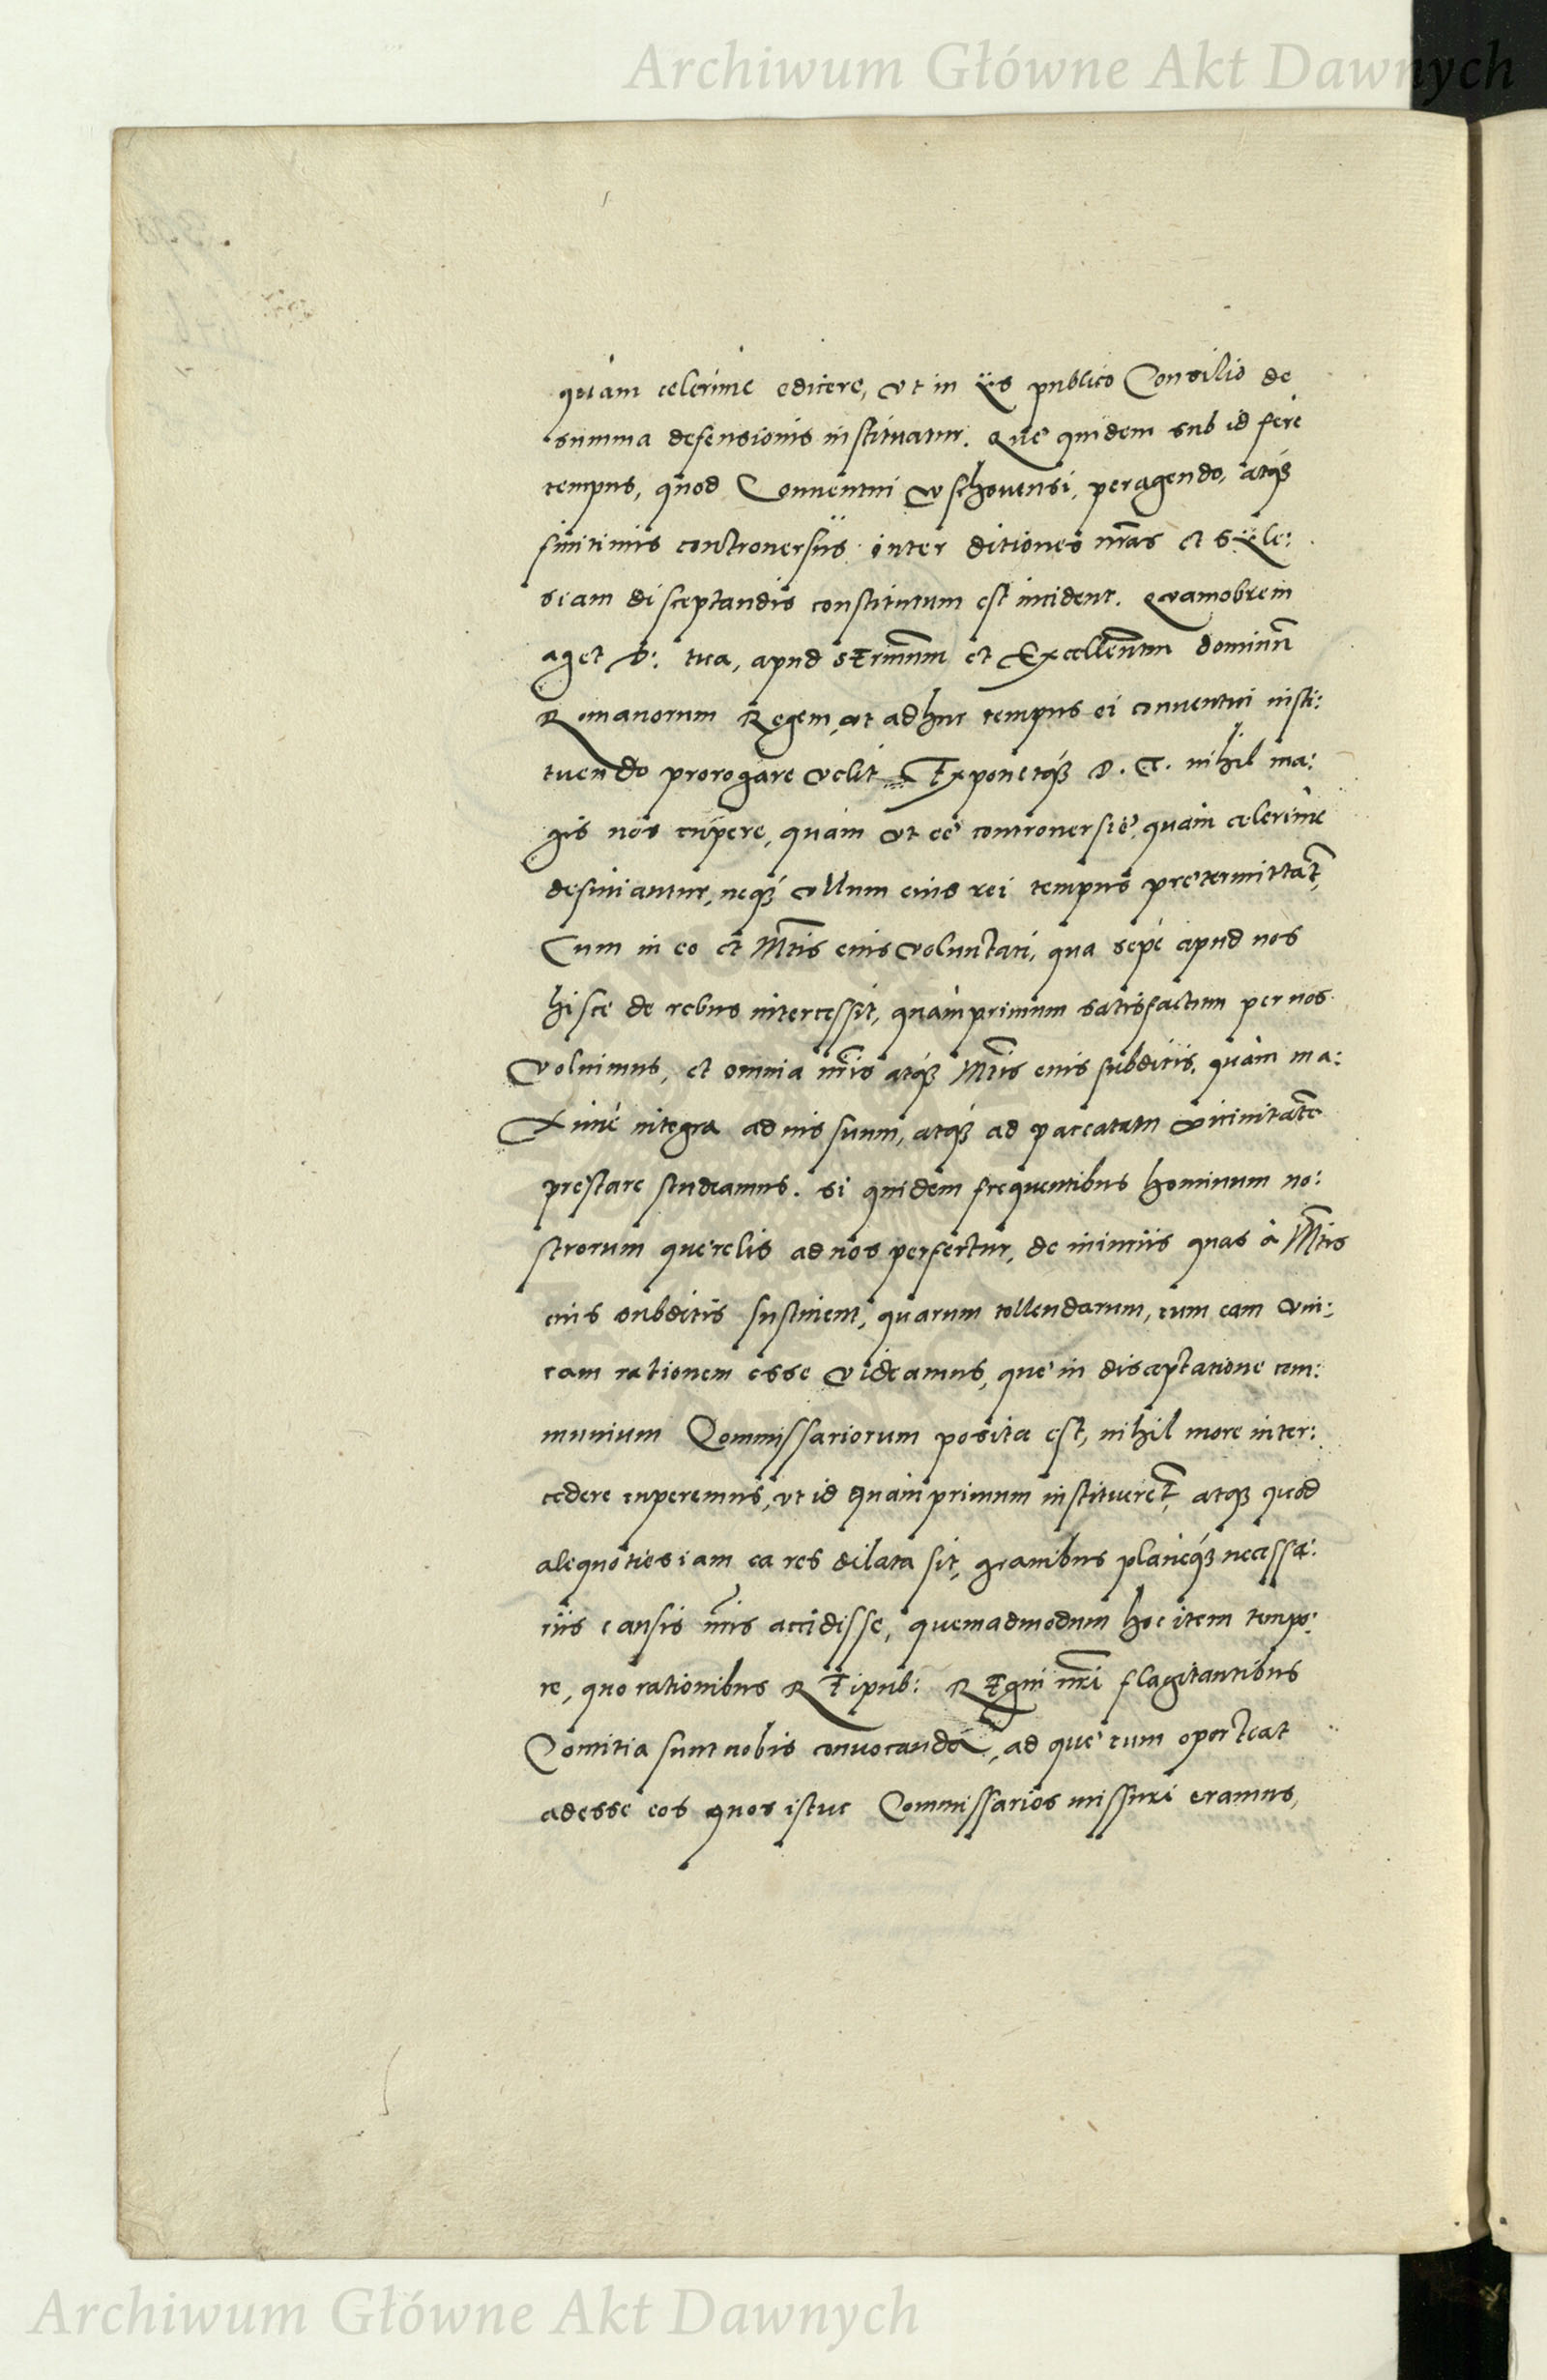 Archiwum Główne Akt Dawnych
quàm celerimè edicere, vt in ijs publico Consilio de
summa defensionis instituatur. Quę quidem sub id ferè
tempus, quod Conuentui Vschouensi, peragendo, atq₃
finitimis controuersijs inter ditiones nr̃as et Syle:
siam disceptandis constitutum est incident. Quamobrem
aget D: tua, apud sẽrmum et Excellentm̃ dominũ
Romanorum Regem, vt adhuc tempus ei conuentui insti:
tuendo prorogare velit Exponetq₃ D. T. nihil ma:
gis nos cupere, quàm vt eę controuersię, quàm celerimè
definiantur, neq₃ vllum eius rei tempus prętermittat̃,
Cum in eo et Mt̃is eius voluntati, qua sępè apud nos
hisce de rebus intercessit, quàmprimum satisfactum per nos
voluimus, et omnia nr̃is atq₃ Mt̃is eius subditis, quàm ma:
ximè integra ad ius suum, atq₃ ad paccatam vicinitatẽ
pręstare studeamus. Si quidem frequentibus hominum no:
strorum querelis ad nos perfertur, de iniurijs quas à Mt̃is
eius subditis sustinent, quarum tollendarum, cum eam vni:
cam rationem esse videamus, quę in disceptatione com:
munium Commissariorum posita est, nihil more inter:
cedere cuperemus, vt id quàmprimum institueret̃, atq₃ quod
alequoties iam ea res dilata sit, grauibus planeq₃ necessa:
rijs causis nr̃is accidisse, quemadmodum hoc item tempo:
re, quo rationibus Reipub: Regni nr̃i flagitantibus
Comitia sunt nobis conuocanda, ad quę cum oporteat
adesse eos quos istuc Commissarios missuri eramus,
Archiwum Główne Akt Dawnych